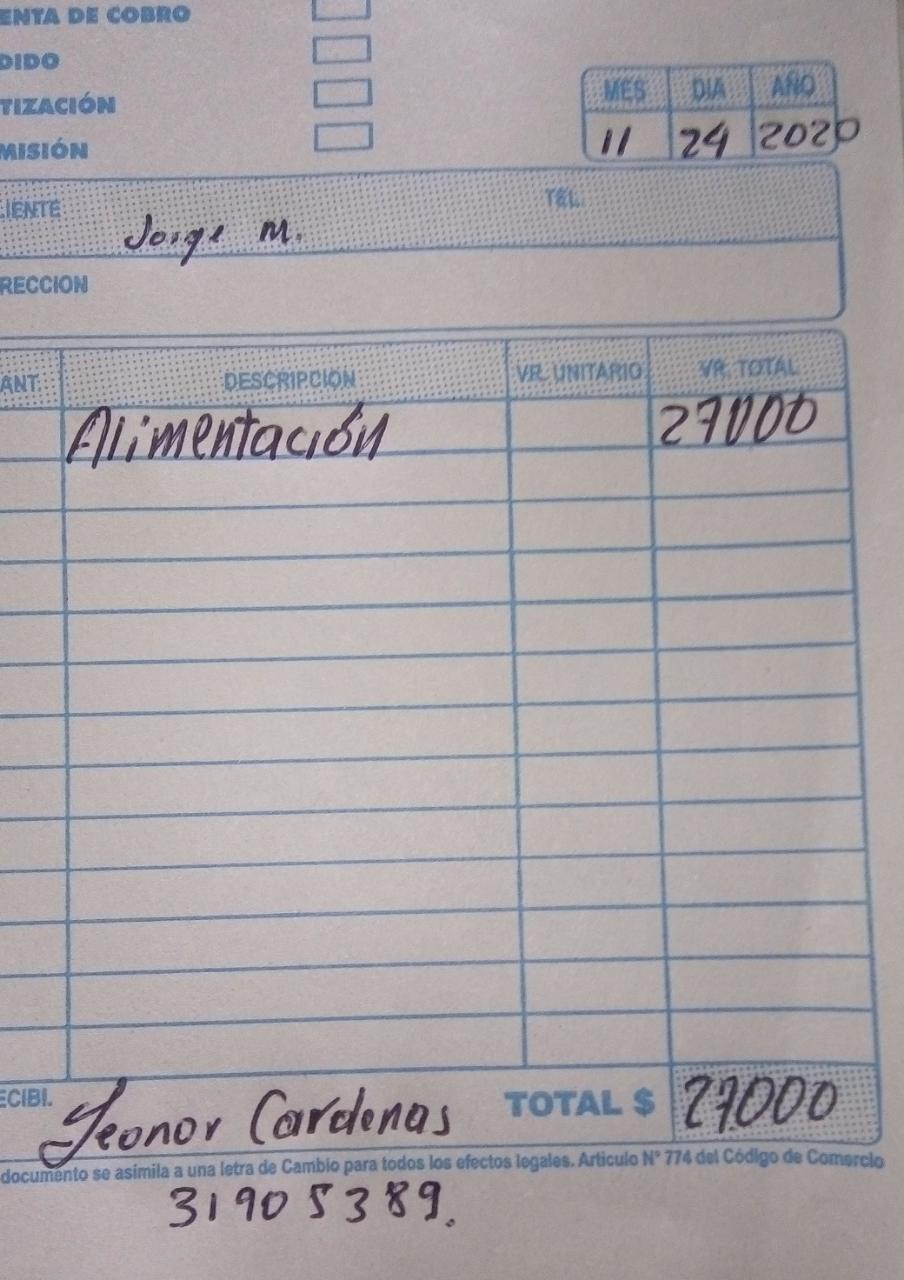 ENTA DE COBRO
DIDO
TIZACIÓN
MISIÓN
MES DIA AÑO
11 24 2020
LIENTE TEL.
Jorge M.
RECCION
ANT. DESCRIPCIÓN VR. UNITARIO VR. TOTAL
Alimentación 27000
ECIBI. Leonor Cardenas TOTAL $ 27000
documento se asimila a una letra de Cambio para todos los efectos legales. Articulo N° 774 del Código de Comercio
31905389.